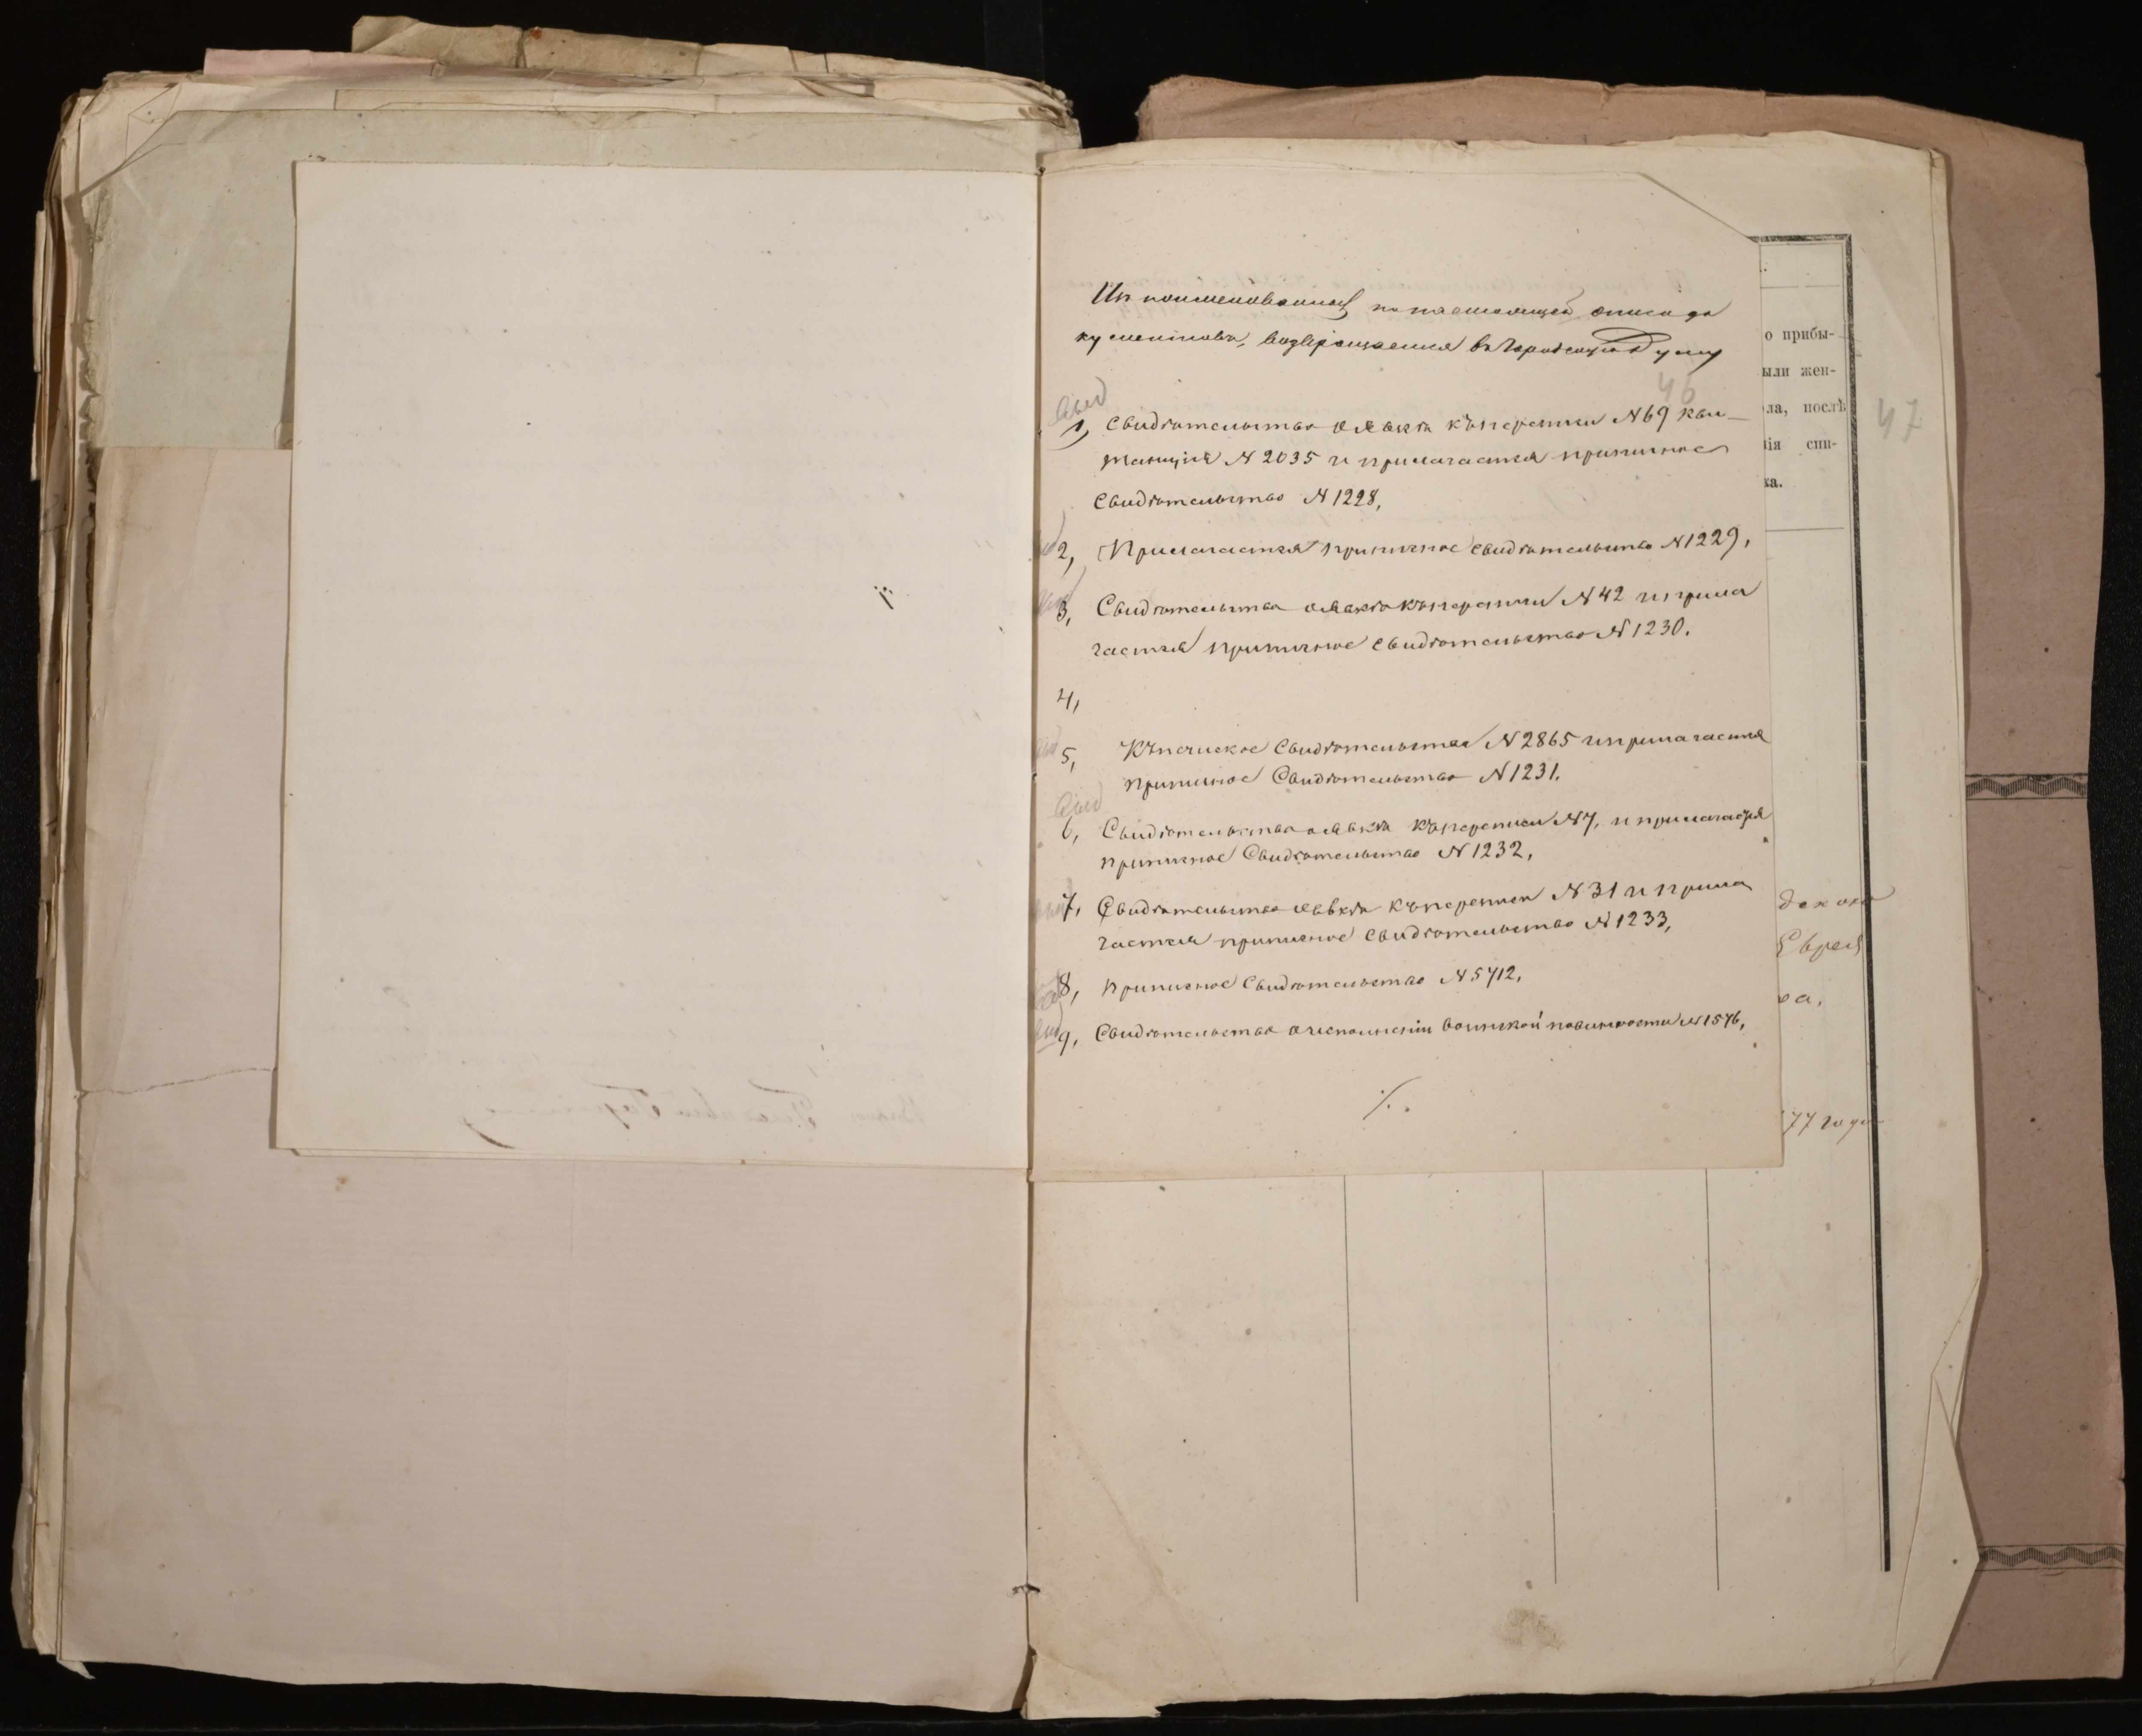 Из поименованных по настоящей описи до
кументовъ, возвращается въ Городскую Думу
46
1, Свидѣтельство о явкѣ къ переписи N 69 кви-
танція N 2035 и прилагается приписное
Свидѣтельство N 1228,
2, Прилагается приписное свидѣтельство N 1229,
3, Свидѣтельство о явкѣ къ переписи N 42 и прила
гается приписное свидѣтельство N 1230.
4,
5, Купеческое Свидѣтельство N 2865 и прилагается
приписное Свидѣтельство N 1231.
6, Свидѣтельство о явкѣ къ переписи N 7, и прилагается
приписное Свидѣтельство N 1232,
7, Свидѣтельство о явкѣ къ переписи N 31 и прила
гается приписное свидѣтельство N 1233,
8, приписное Свидѣтельство N 5712,
9, Свидѣтельство о исполненіи воинской повинности N 1576,
о прибы-
ыли жен-
ла, послѣ
ія спи-
ка.
47
Еврея
ва,
77 года